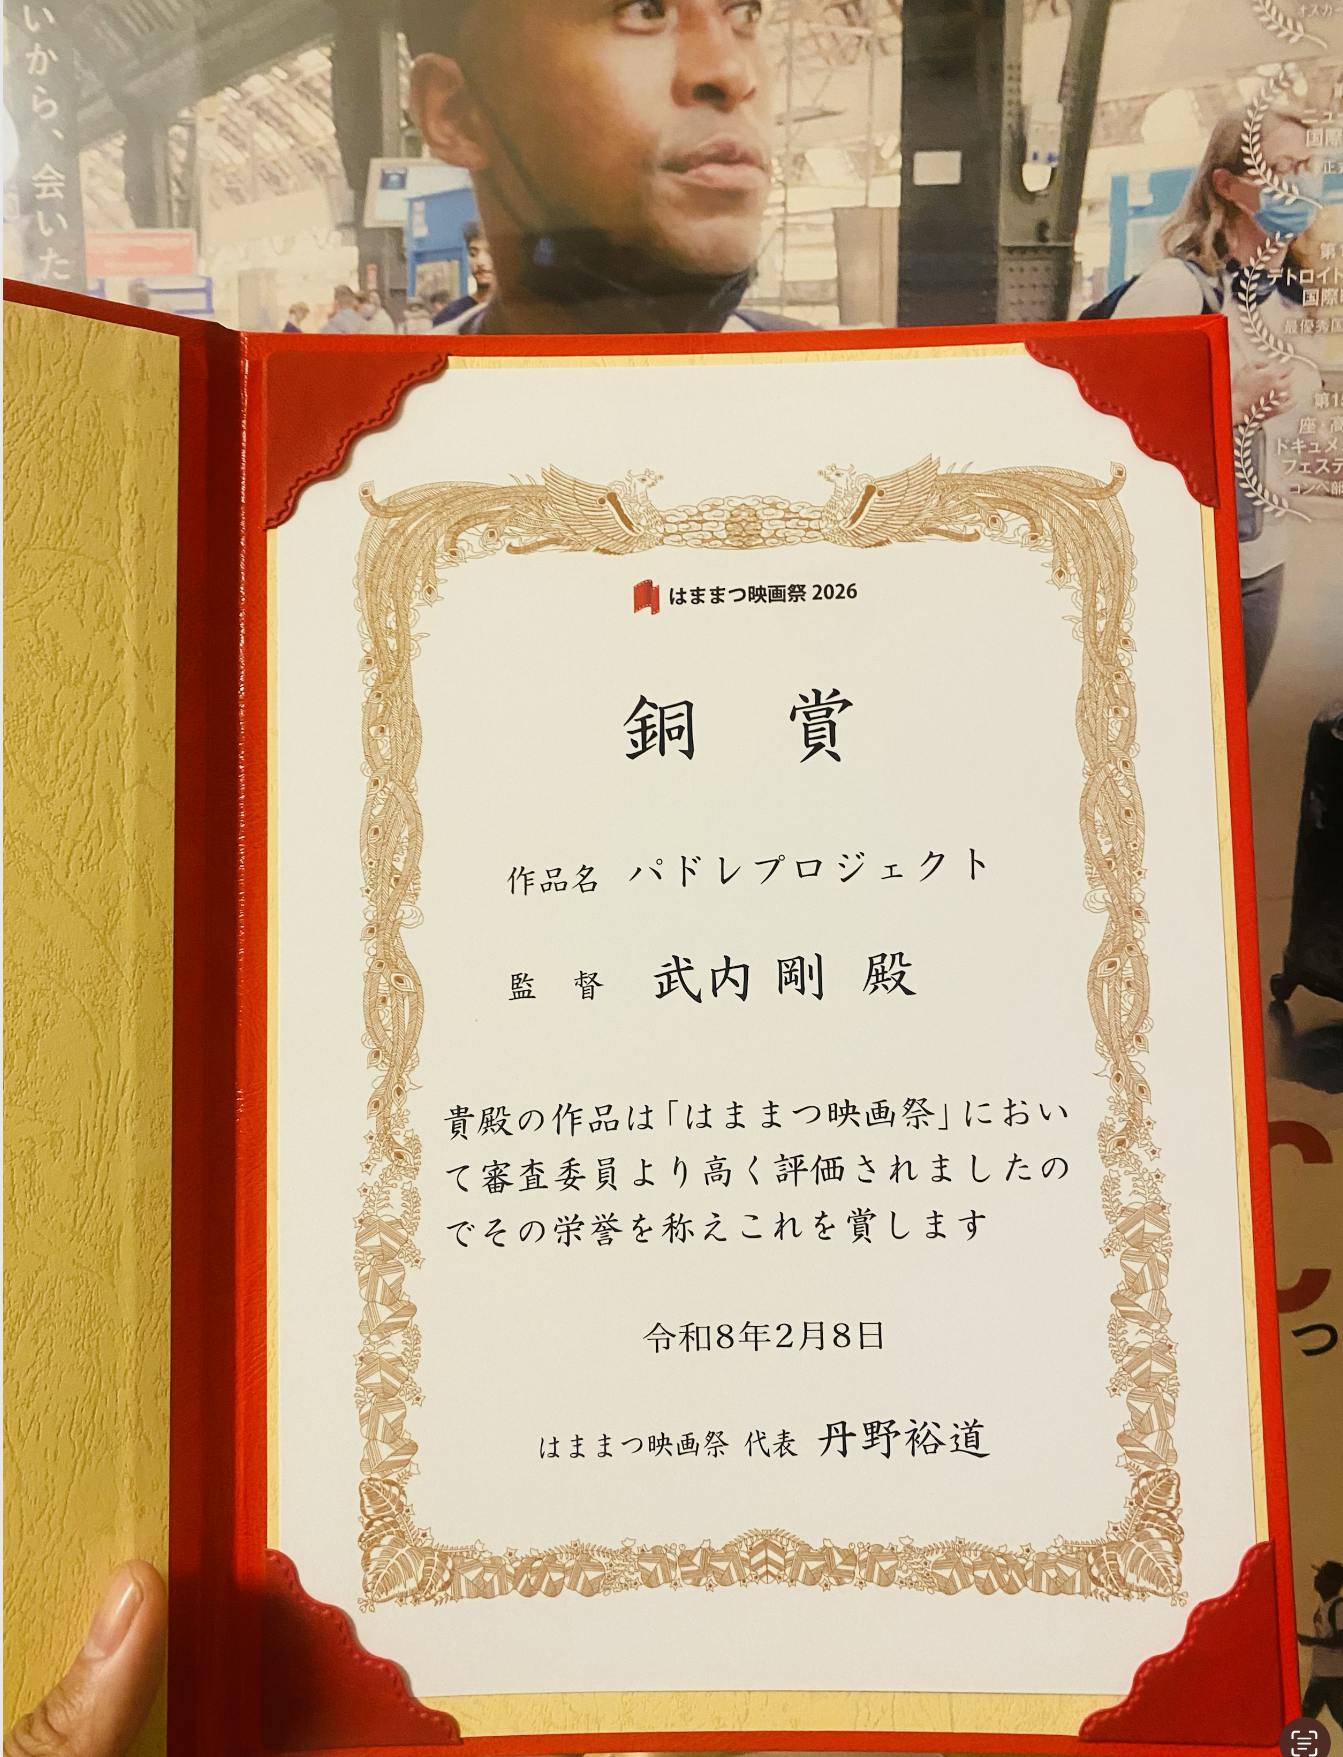 いから、会いた
オスカー
ニュ
国際
正式
第1
デトロイト
国際
最優秀
第15
座・高
ドキュメ
フェステ
コンペ部
はままつ映画祭 2026
銅 賞
作品名 パドレプロジェクト
監 督 武内 剛 殿
貴殿の作品は「はままつ映画祭」におい
て審査委員より高く評価されましたの
でその栄誉を称えこれを賞します
令和8年2月8日
はままつ映画祭 代表 丹野裕道
C
つ